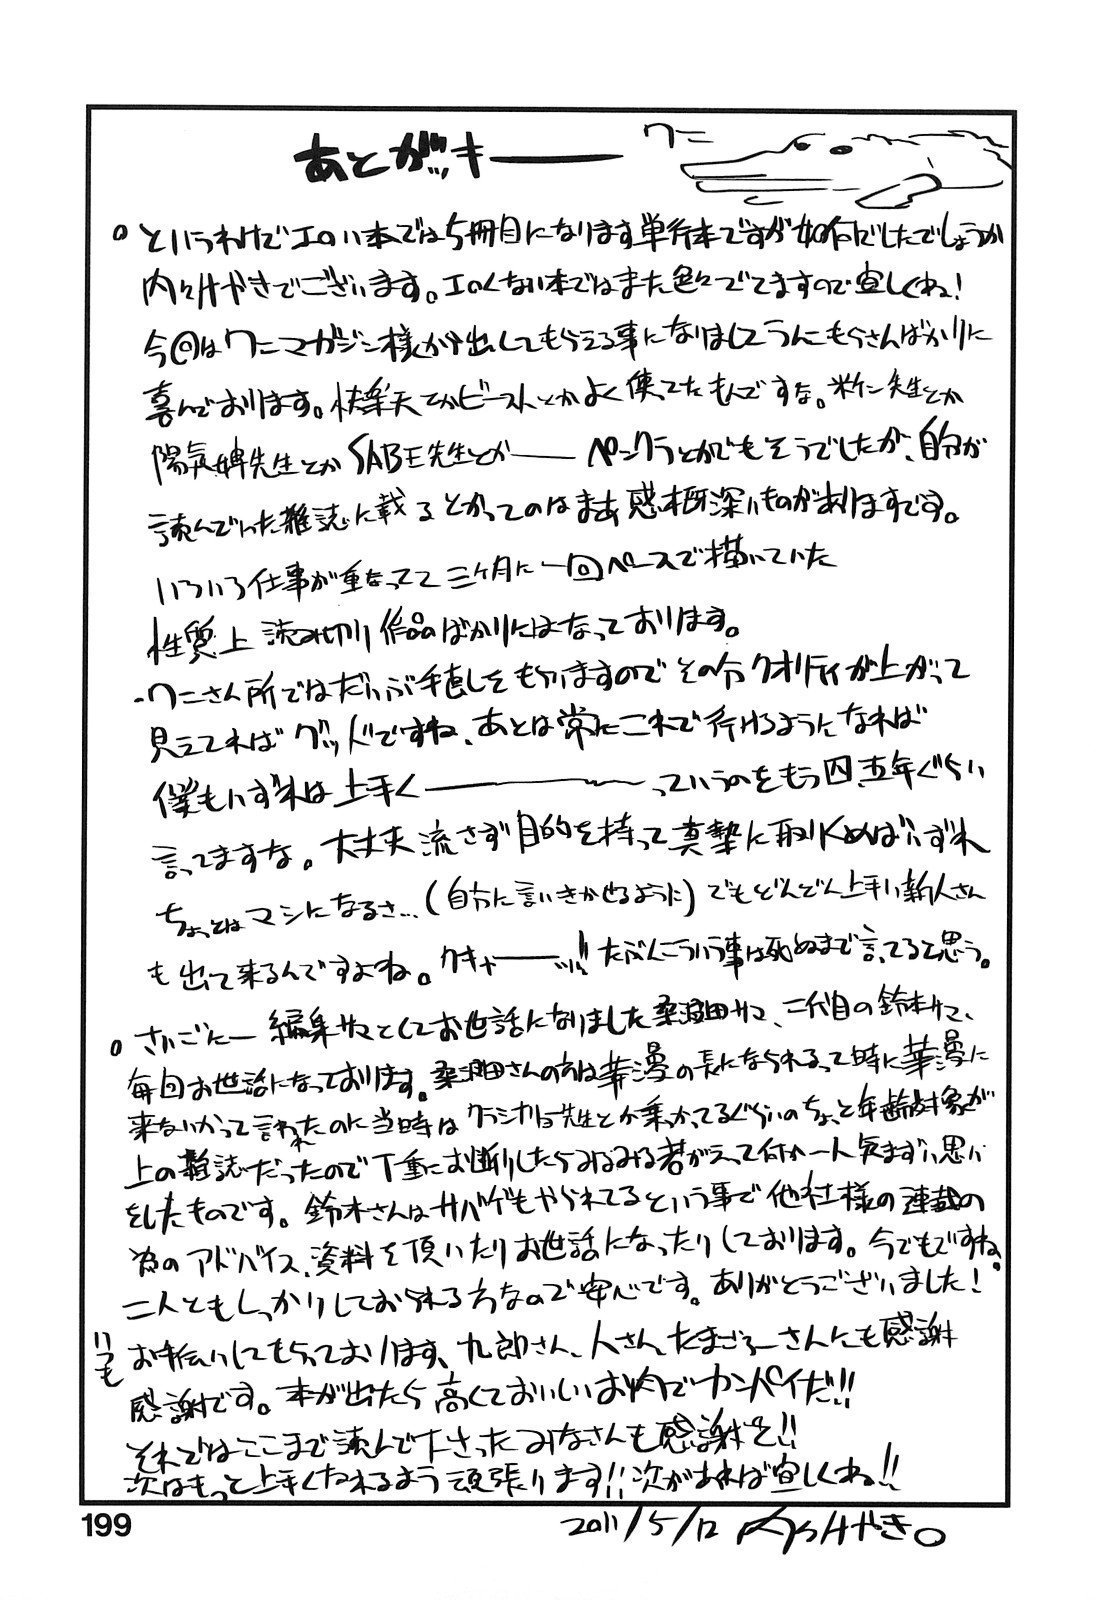 あとがッキーーー
ワニ
。というわけでエロい本では5冊目になります単行本ですが如何でしたでしょうか
内々けやきでございます。エロくない本ではまた色々でてますので宜しくね!
今回はワニマガジン様から出してもらえる事になりましてうんこもらさんばかりに
喜んでおります。快楽天とかビーストとかよく使ってたもんですな。米倉先生とか
陽気婢先生とかSABE先生とか―― ペンクラとかでもそうでしたが、自分が
読んでいた雑誌に載るとかってのはまあ感概深いものがありますです。
いろいろ仕事が重なってて三ヶ月に一回ペースで描いていた
性質上 読み切り作品ばかりにはなっております。
・ワニさん所ではだいぶ手直しをもらいますのでその分クオリティが上がって
見えてればグッドですね、あとは常にこれで行けるようになれば
僕もいずれは上手く―――~~―っていうのをもう四、五年ぐらい
言ってますな。大丈夫 流さず目的を持って真摯に取り組めばいずれ
ちょっとはマシになるさ…(自分に言いきかせるように)でもどんどん上手い新人さん
も出て来るんですよね。クキャーーーッッ!! たぶんこういう事は死ぬまで言ってると思う。
。さいごにー 編集サマとしてお世話になりました桑沢田サマ、二代目の鈴木サマ、
毎回お世話になっております。さんの方は華漫の長になられるって時に華漫に
来ないかって言われたのに当時はクラシカル先生とか乗っかってるぐらいのちょっと年齢対象が
上の雑誌だったので丁重にお断りしたらみるみる若がえって何か一人気まずい思い
をしたものです。鈴木さんはサバゲもやられてるという事で他社様の連載の
為のアドバイス、資料を頂いたりお世話になったりしております。今でもですね。
二人ともしっかりしておられる方なので安心です。ありがとうございました!
いつも
お手伝いしてもらっております、九郎さん、人さん、たまごろーさんにも感謝
感謝です。本が出たら高くておいしいお肉でカンパイだ!!
それではここまで読んで下さったみなさんも感謝を!!
次はもっと上手くなれるよう頑張ります!!次があれば宜しくね!!
199
2011/5/12 内々けやき。